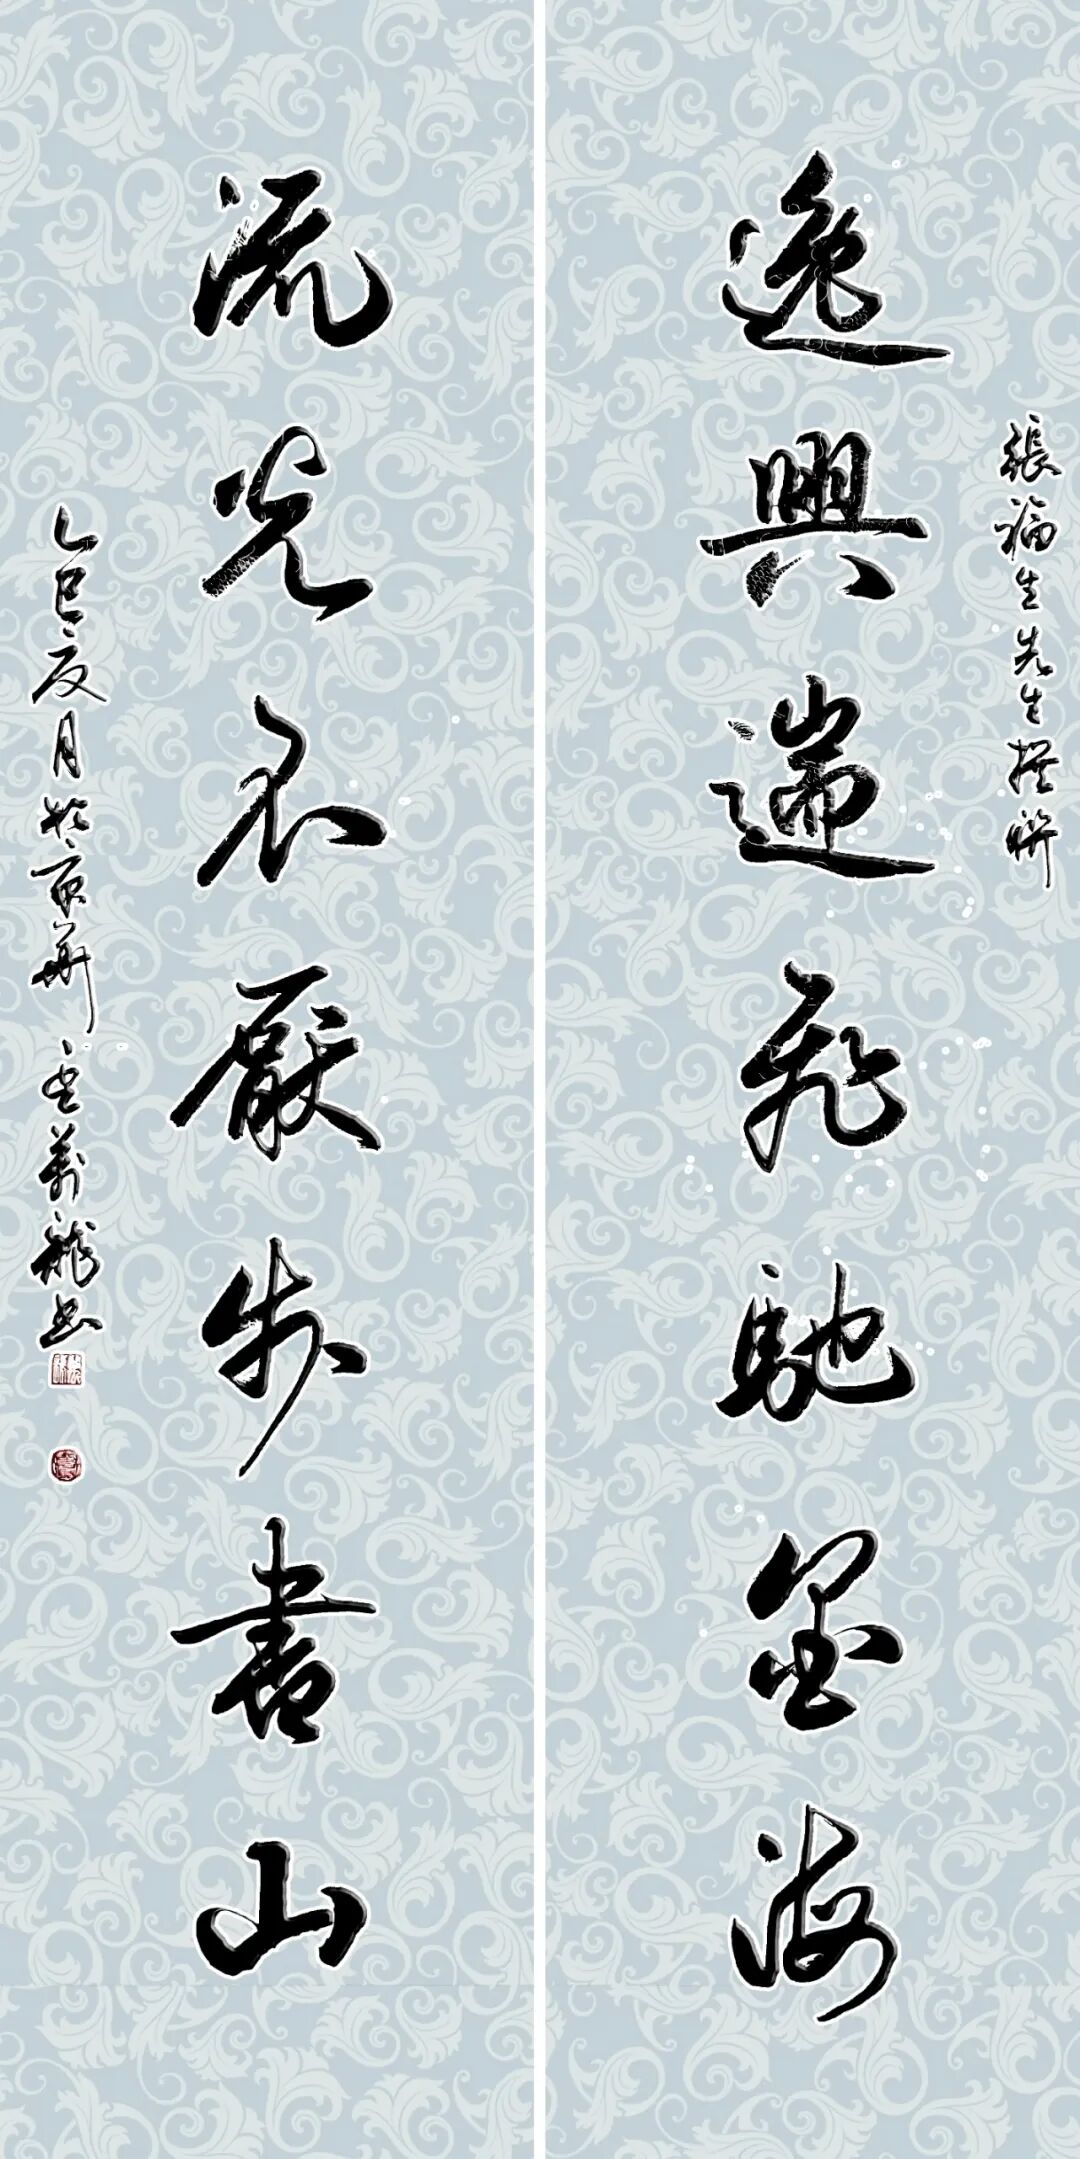 張福生先生撰聯
逸興遄飛馳墨海
流光不厭步書山
乙巳夏月於京華
萬龍书